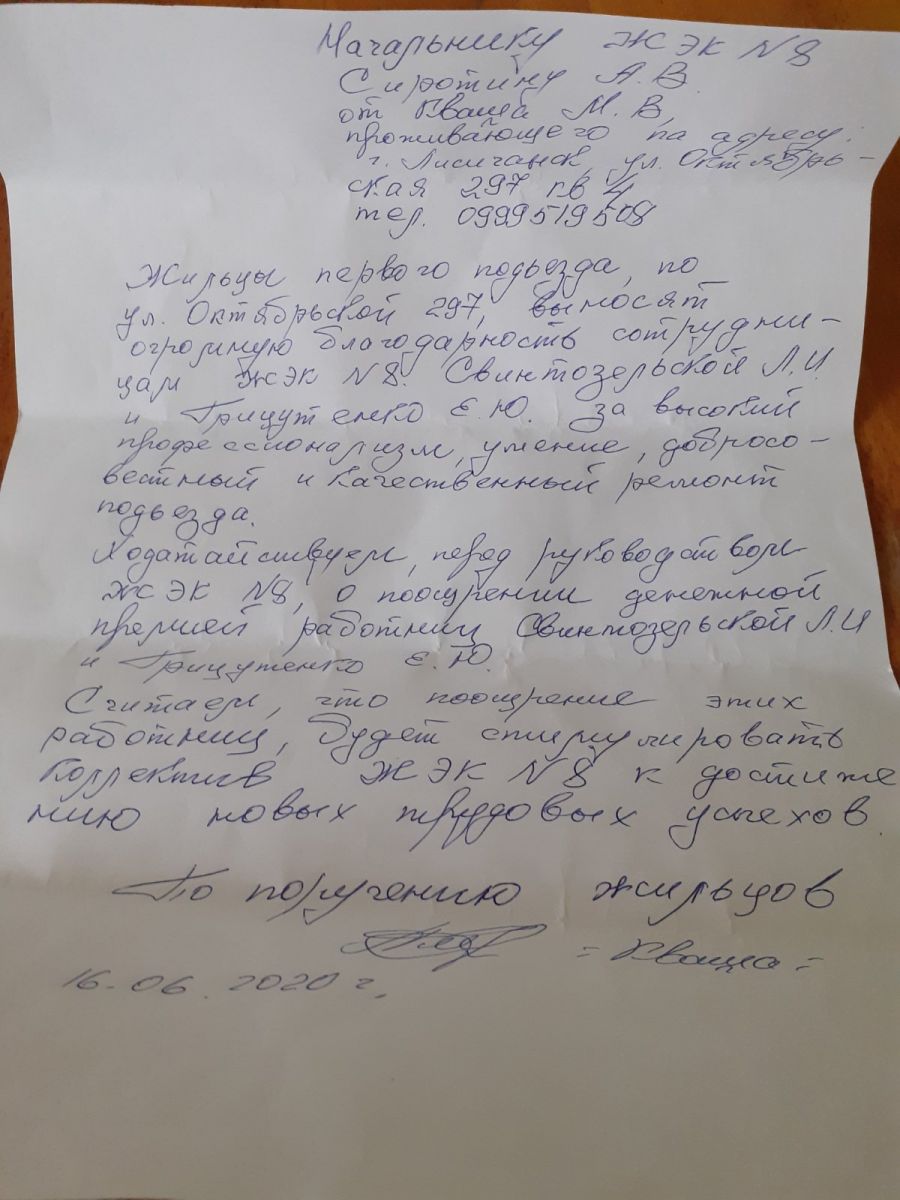 Начальнику ЖЭК N8
Сиротину А.В.
от Кваша М.В,
проживающего по адресу:
г. Лисичанск, ул. Октябрь-
ская 297 кв 4
тел. 0999519508
Жильцы первого подьезда, по
ул. Октябрьской 297, выносят
огромную благодарность сотрудни-
цам ЖЭК N8. Свинтозельской Л.И.
и Грицутенко Е.Ю. за высокий
профессионализм, умение, добросо-
вестный и качественный ремонт
подьезда.
Ходатайствуем, перед руководством
ЖЭК N8, о поощрении денежной
премией работниц Свинтозельской Л.И
и Грицутенко Е.Ю.
Считаем, что поощрение этих
работниц, будет стимулировать
коллектив ЖЭК N8 к достиже
нию новых трудовых успехов.
По поручению жильцов
= Кваша =
16.06.2020 г.